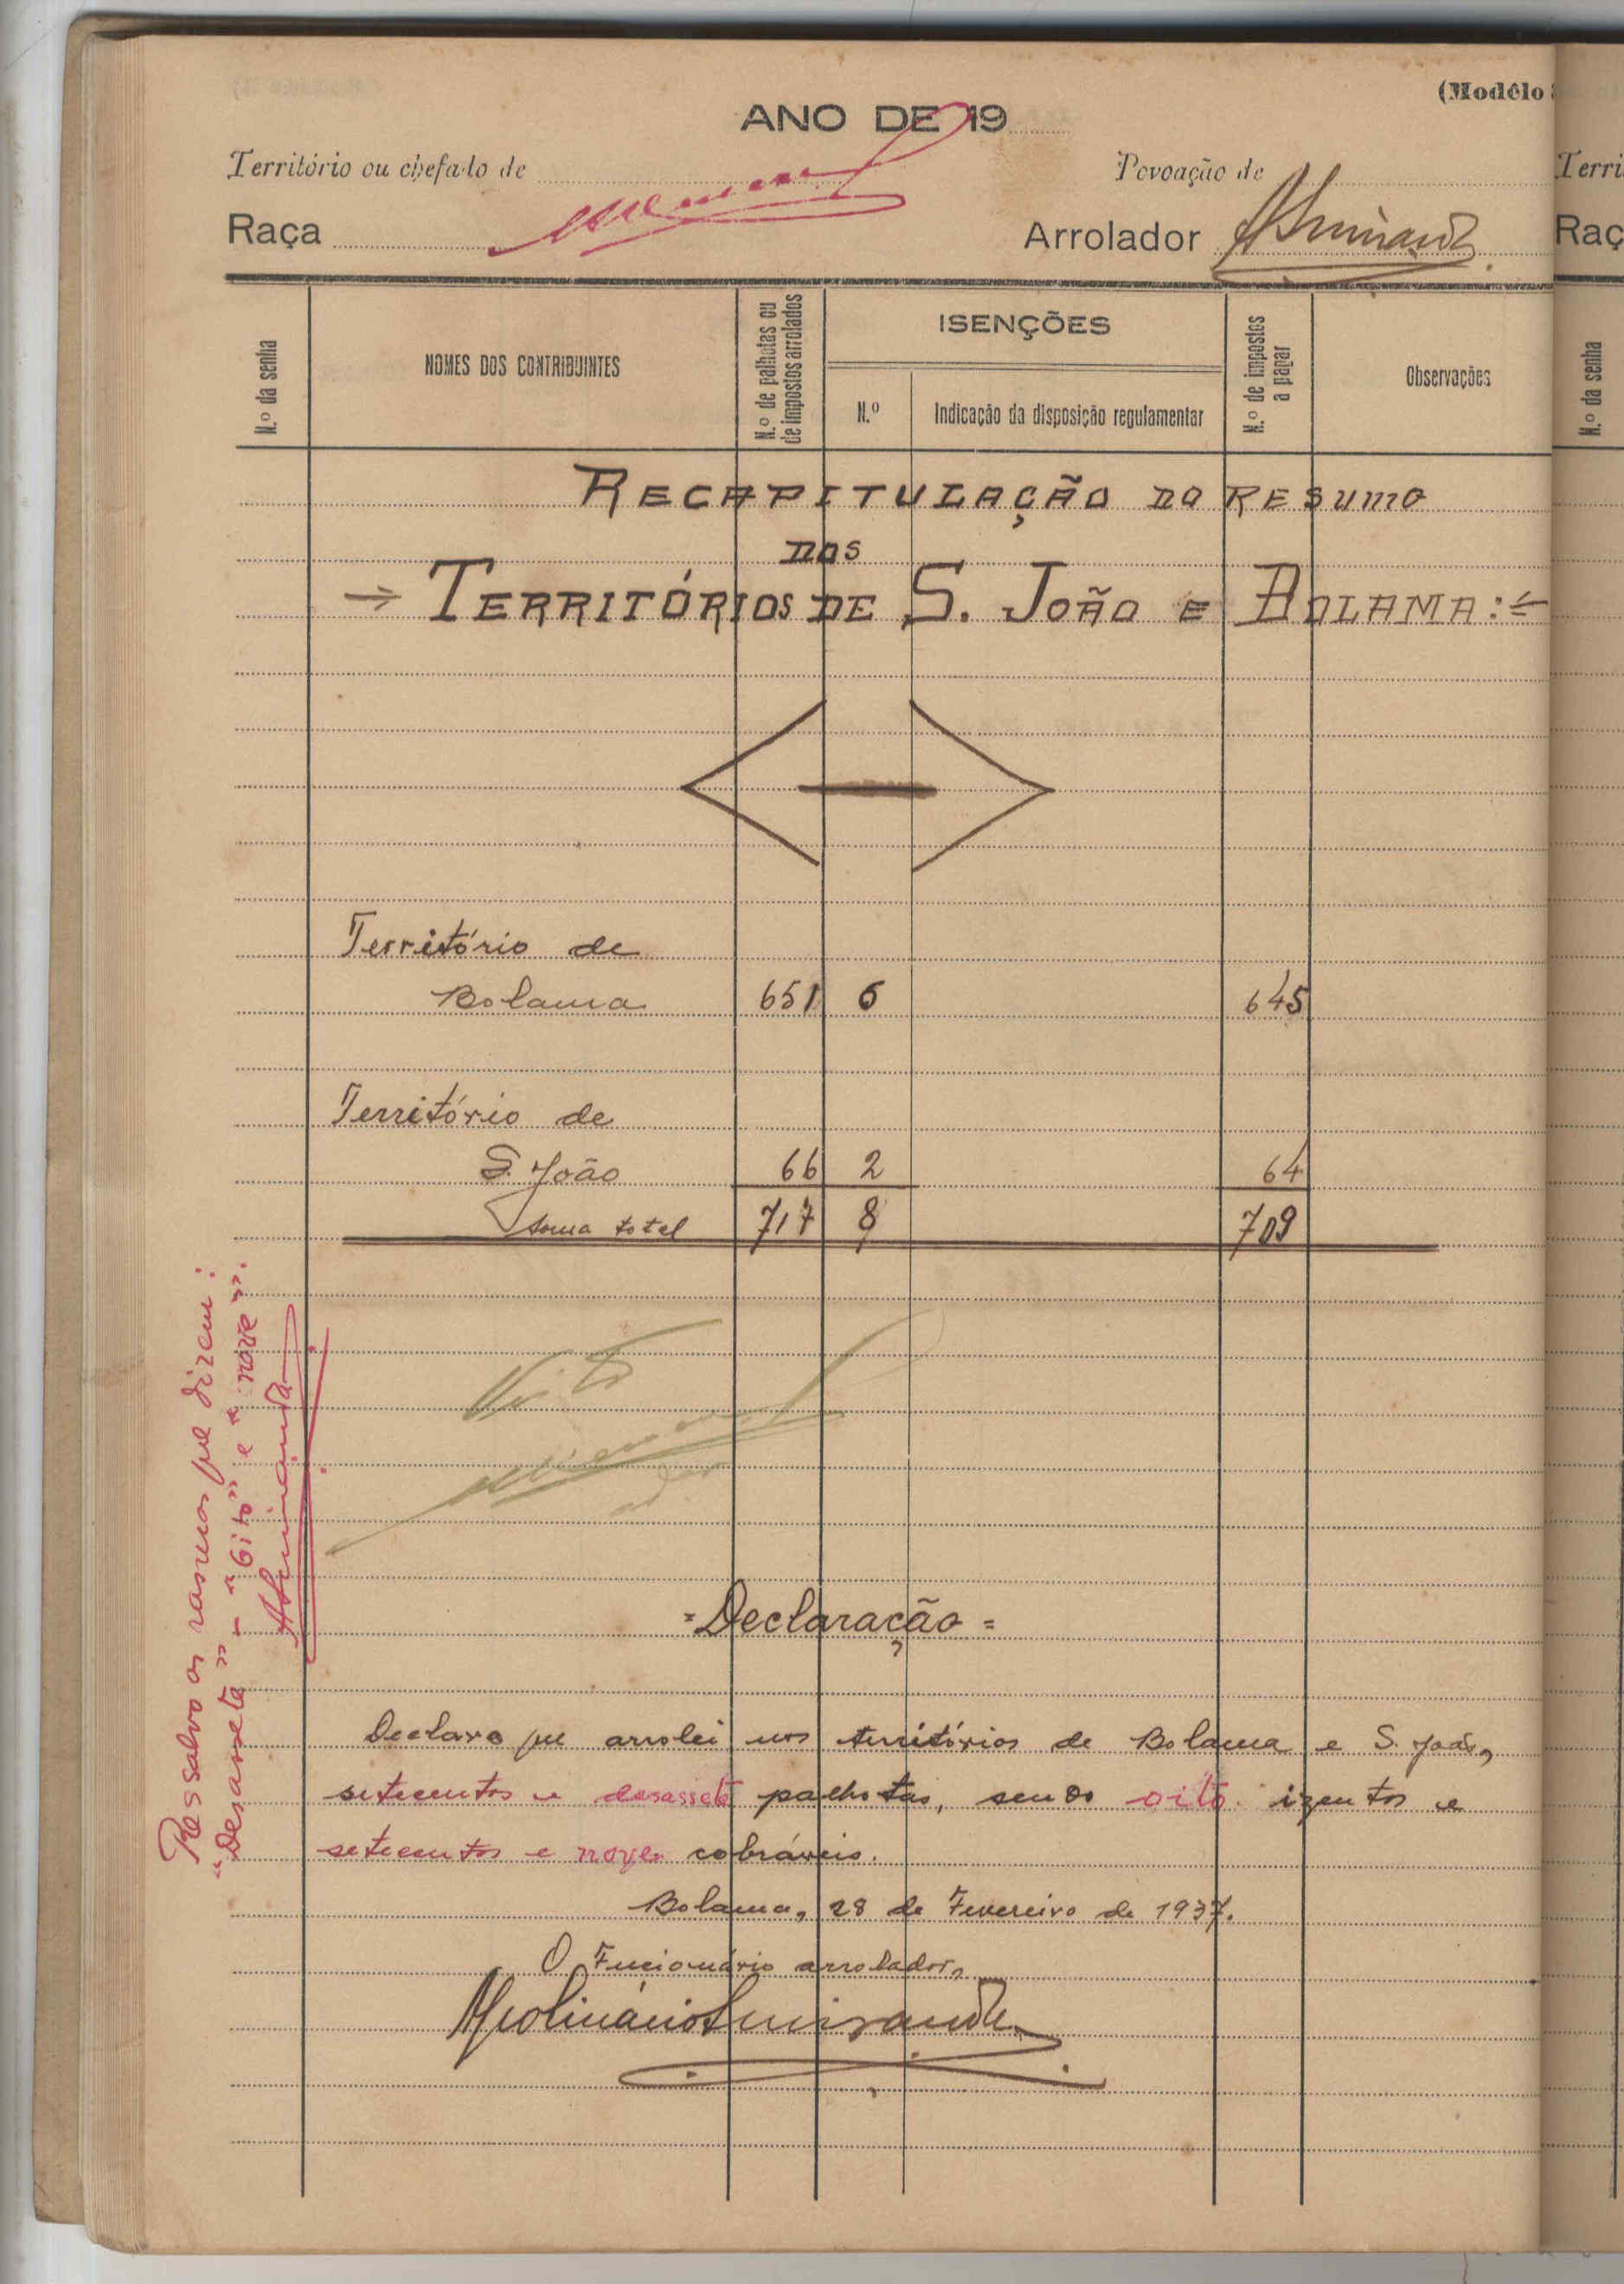 (Modêlo
ANO DE 19
Território ou chefado de
Povoação de
Raça
Arrolador
N.º da senha
NOMES DOS CONTRIBUINTES
N.º de palhotas ou de impostos arrolados
ISENÇÕES
N.º
Indicação da disposição regulamentar
N.º de impostos a pagar
Observações
RECAPITULAÇÃO DO RESUMO
DOS
TERRITÓRIOS DE S. JOÃO E BOLAMA:=
Território de
Bolama 651 6 645
Território de
S. João 66 2 64
Soma total 717 8 709
Visto
=Declaração=
Declaro que arrolei nos territórios de Bolama e S. João,
setecentos e desassete palhotas, sendo oito izentos e
setecentos e nove cobráveis.
Bolama, 28 de Fevereiro de 1937.
O Funcionário arrolador,
Ressalvo as rasuras que dizem:
"desassete" - "oito" e "nove".
Terri
Raç
N.º da senha